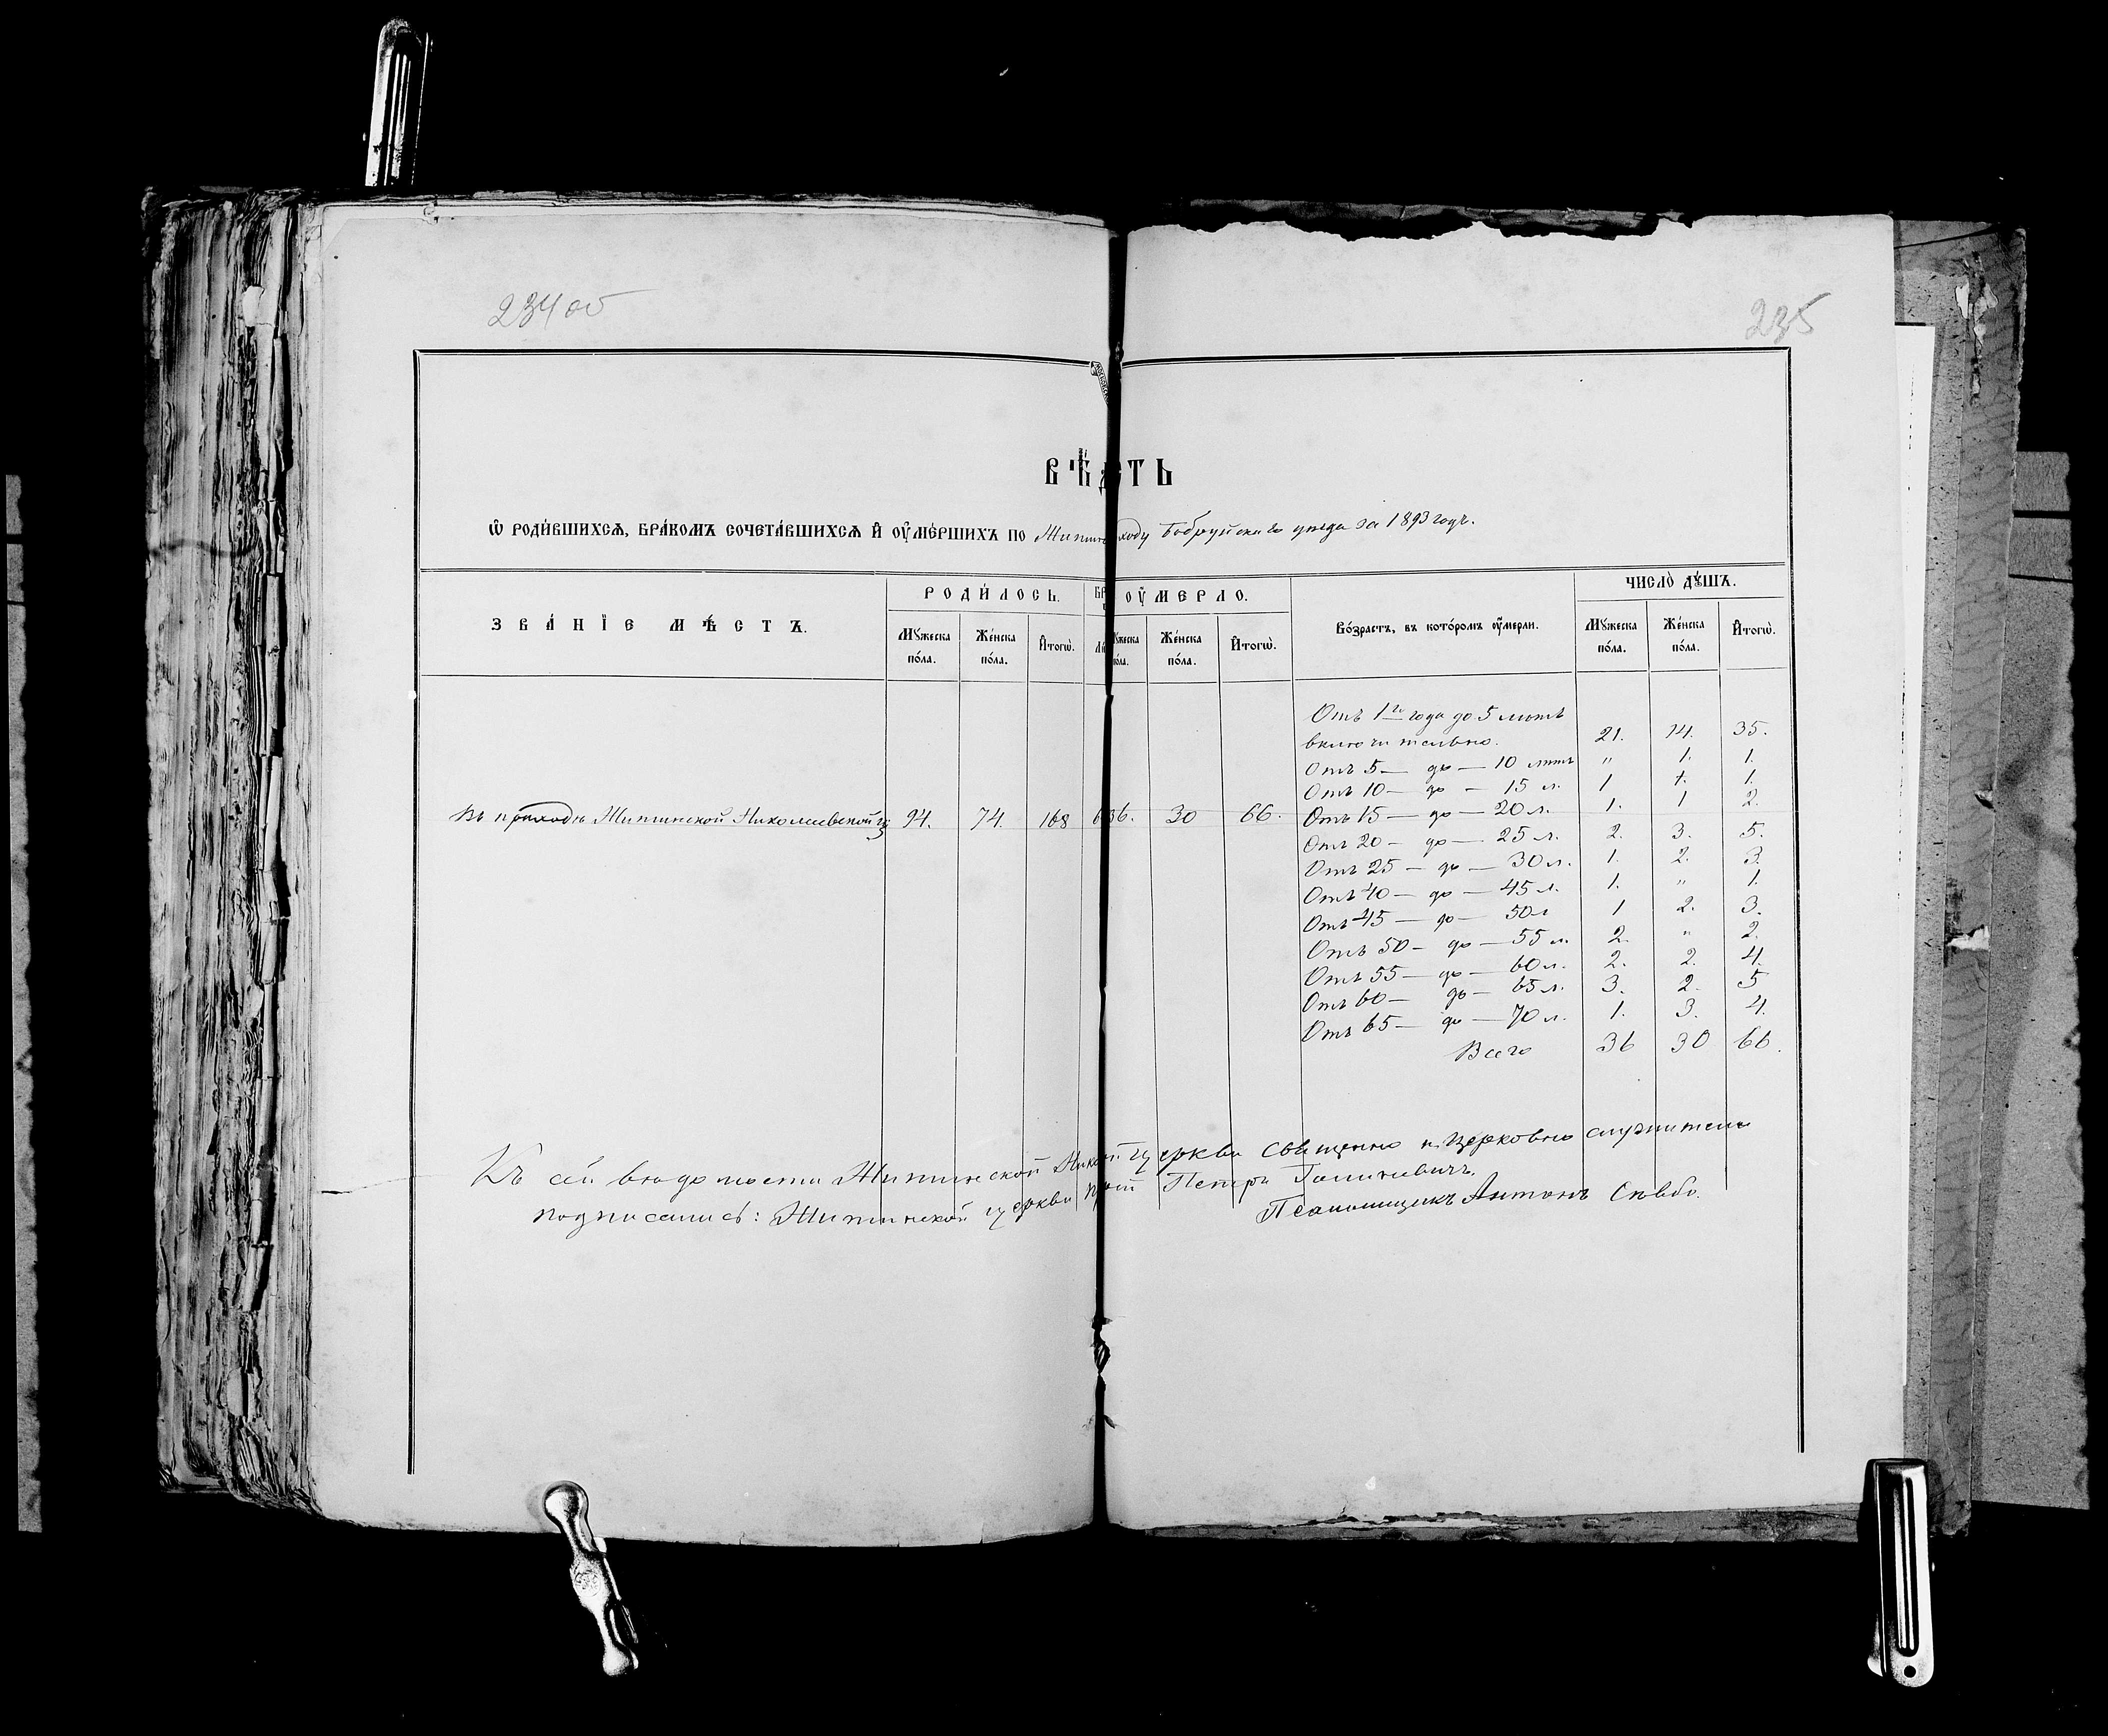 234 об
235
ВѢ СТЬ
Ѡ РОДИ́ВШИХСѦ, БРА́КОМЪ СОЧЕТА́ВШИХСѦ И҆ ОУ҆МЕ́РШИХЪ ПО Жити ходу Бобруйскаго уѣзда за 1893 годъ.
ЗВА́НІЕ МѢ́СТЪ. РОДИ́ЛОСЬ. БР ОУ҆МЕРЛО. Во́зрастъ, въ кото́ромъ оу҆мерли. ЧИСЛО̀ ДꙊ́ШЪ.
Мꙋжеска по́ла. Же́нска по́ла. И҆тогѡ̀. ꙋжеска по́ла. Же́нска по́ла. И҆тогѡ̀. Мꙋжеска по́ла. Же́нска по́ла. И҆тогѡ̀.
Отъ 1го года до 5 лѣтъ
включительно. 21. 14. 35.
Отъ 5 — до — 10 лѣтъ " 1. 1.
Отъ 10 — до — 15 л. 1 1.
Въ приходѣ Житинской Николаевской ц 94. 74. 168 36. 30 66. Отъ 15 — до — 20 л. 1. 1 2.
Отъ 20 — до — 25 л. 2. 3. 5.
Отъ 25 — до — 30 л. 1. 2. 3.
Отъ 40 — до — 45 л. 1. " 1.
Отъ 45 — до — 50 л 1 2. 3.
Отъ 50 — до — 55 л. 2. " 2.
Отъ 55 — до — 60 л. 2. 2. 4.
Отъ 60 — до — 65 л. 3. 2. 5
Отъ 65 — до — 70 л. 1. 3. 4.
Всего 36 30 66.
Къ сей вѣдомости Житинской Никол церкви священно и церковно служители
подписались: Житинской церкви Петръ
Псаломщикъ Антонъ